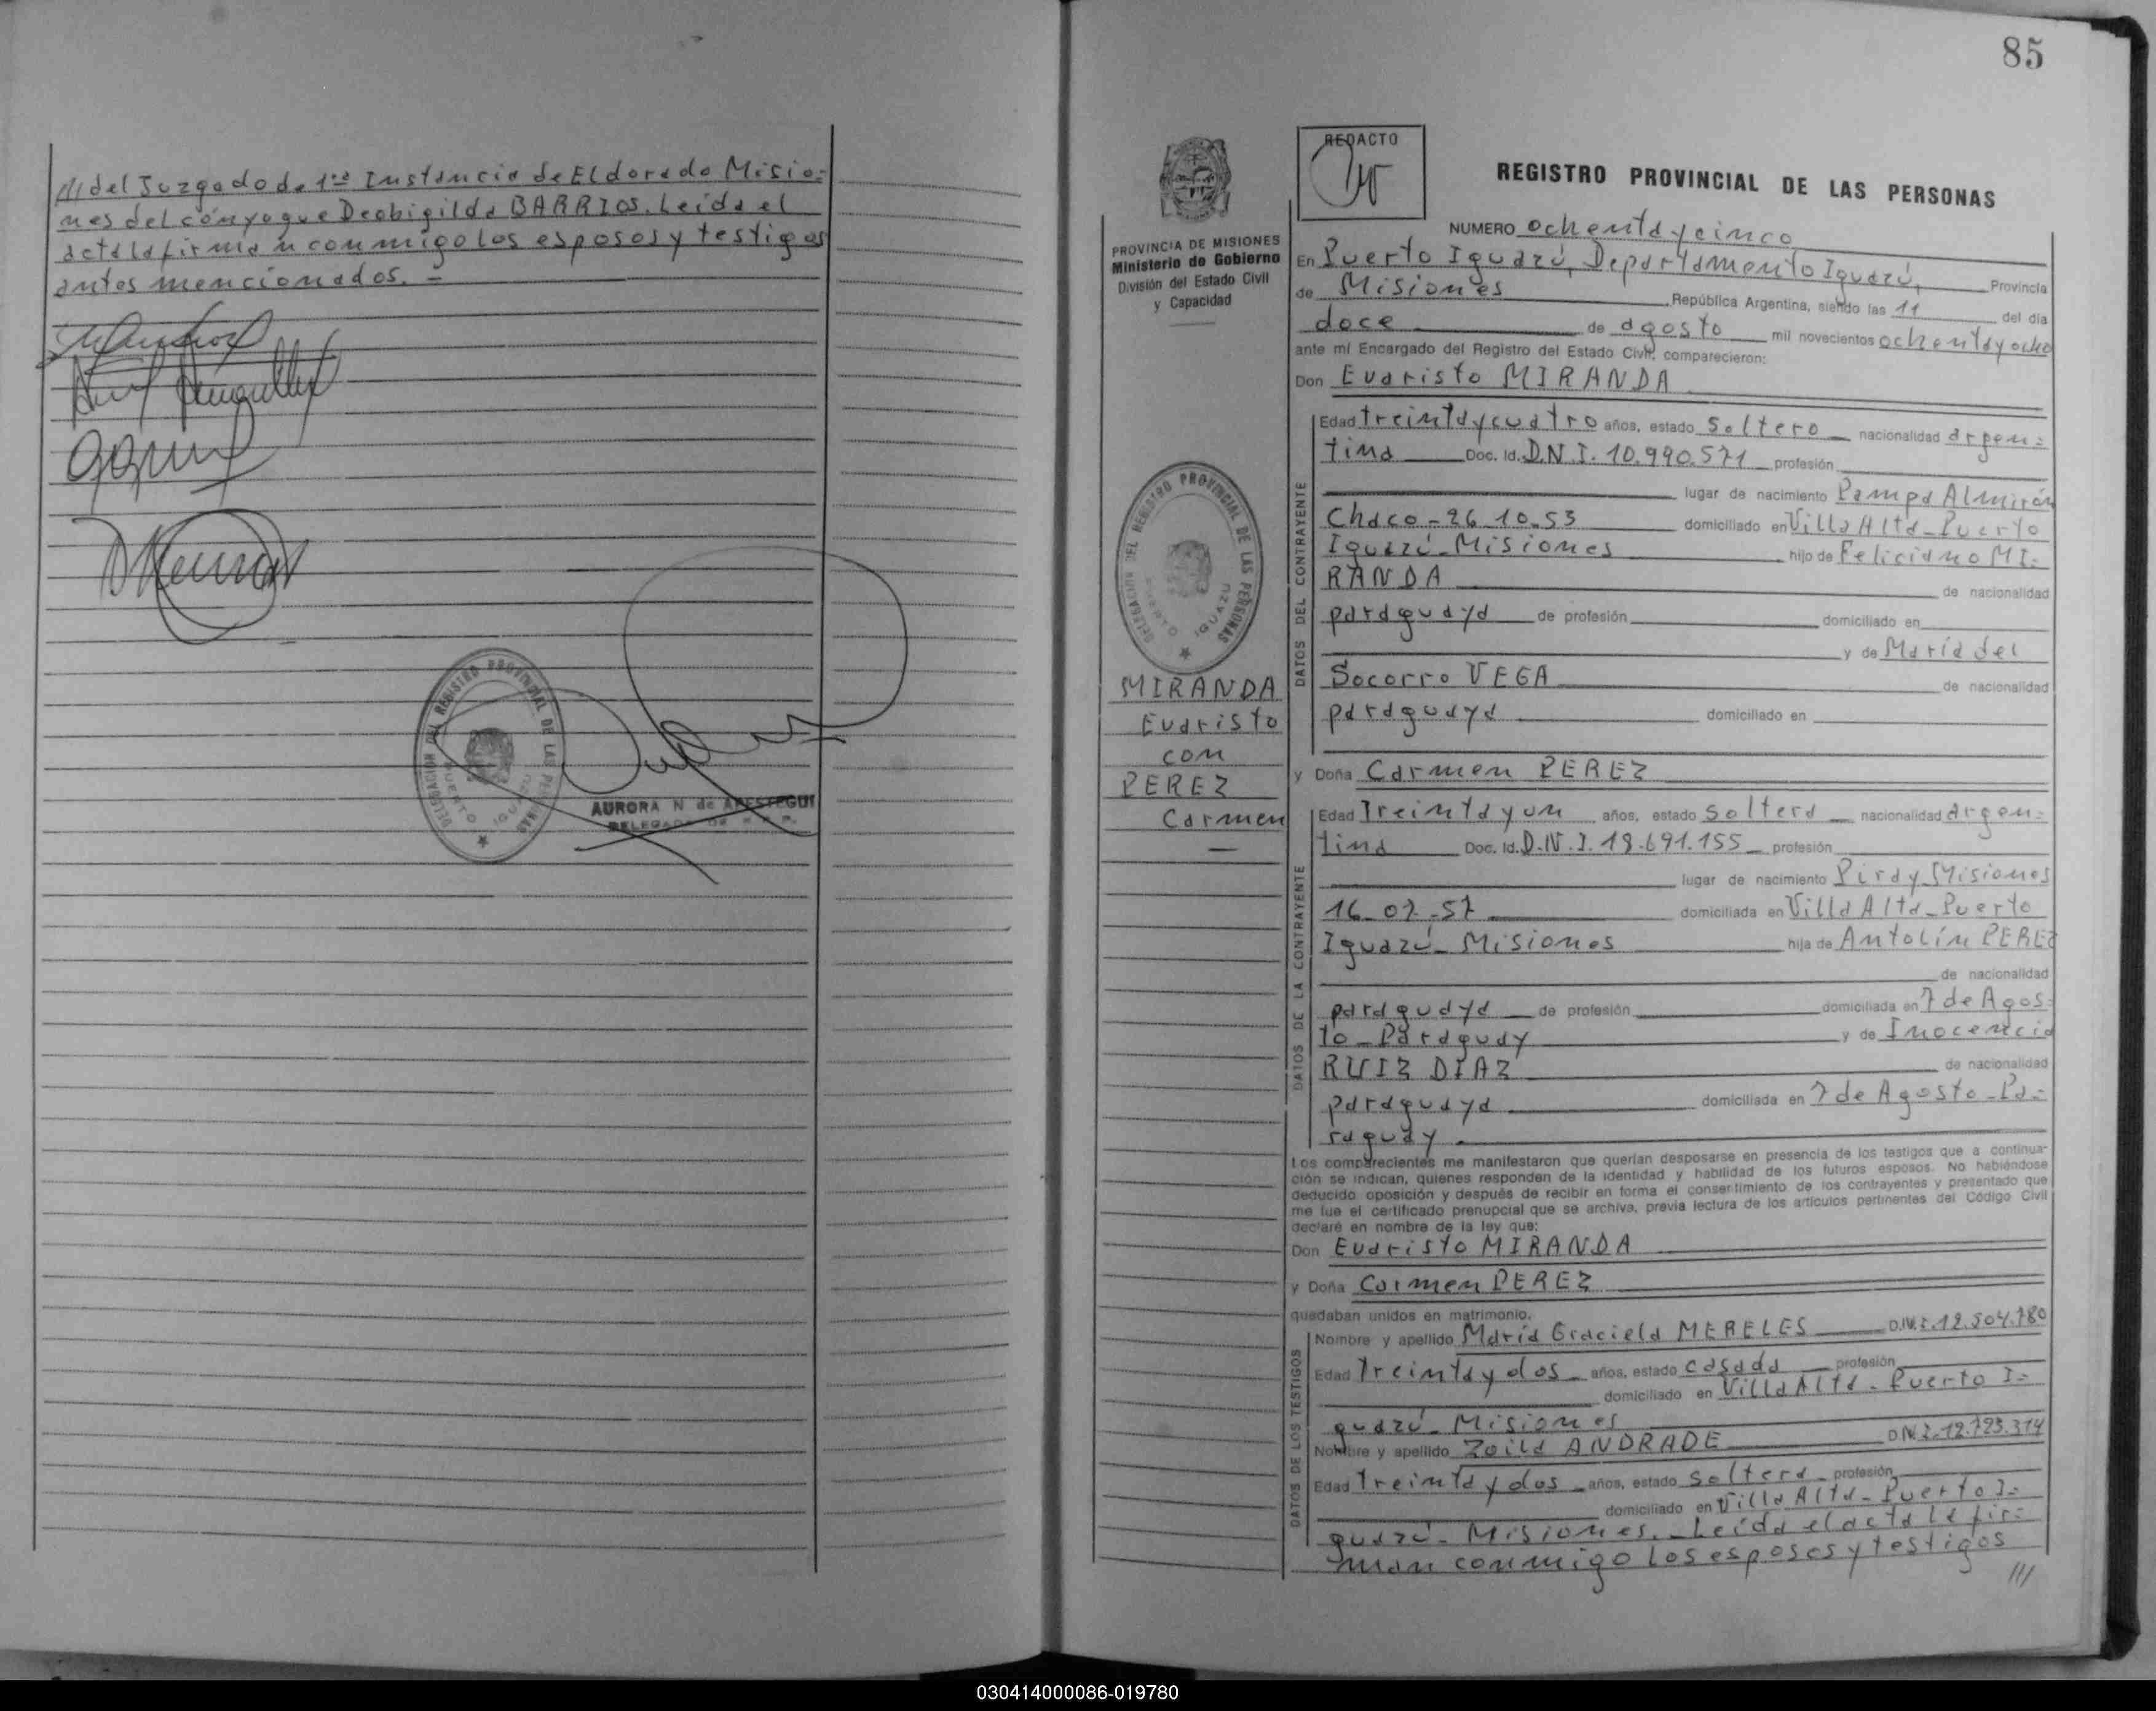 /// del Juzgado de 1ra Instancia de Eldorado Misio=
nes del cónyogue Deobigilda BARRIOS. Leída el
acta la firman conmigo los esposos y testigos
antes mencionados. =
DELEGACION DEL REGISTRO PROVINCIAL DE LAS PERSONAS
PUERTO IGUAZU
AURORA N de APESTEGUI
DELEGADA DE
85
REDACTO
REGISTRO PROVINCIAL DE LAS PERSONAS
PROVINCIA DE MISIONES
Ministerio de Gobierno
División del Estado Civil
y Capacidad
DELEGACION DEL REGISTRO PROVINCIAL DE LAS PERSONAS
PUERTO IGUAZU
MIRANDA
Evaristo
con
PEREZ
Carmen
NUMERO ochenta y cinco
En Puerto Iguazú, Departamento Iguazú, Provincia
de Misiones República Argentina, siendo las 11 del día
doce de agosto mil novecientos ochenta y ocho
ante mí Encargado del Registro del Estado Civil, comparecieron:
Don Evaristo MIRANDA
DATOS DEL CONTRAYENTE
Edad treinta y cuatro años, estado soltero nacionalidad argen=
tina Doc. Id. D.N.I. 10.990.571 profesión
lugar de nacimiento Pampa Almirón
Chaco - 26.10.53 domiciliado en Villa Alta - Puerto
Iguazú - Misiones hijo de Feliciano MI-
RANDA de nacionalidad
paraguaya de profesión domiciliado en
y de María del
Socorro VEGA de nacionalidad
paraguaya domiciliado en
y Doña Carmen PEREZ
DATOS DE LA CONTRAYENTE
Edad Treinta y un años, estado soltera nacionalidad argen=
tina Doc. Id. D.N.I. 18.691.155 profesión
lugar de nacimiento Piray Misiones
16-07-57 domiciliada en Villa Alta - Puerto
Iguazú - Misiones hija de Antolín PEREZ
de nacionalidad
paraguaya de profesión domiciliada en 7 de Agos=
to - Paraguay y de Inocencia
RUIZ DIAZ de nacionalidad
paraguaya domiciliada en 7 de Agosto - Pa=
raguay.
Los comparecientes me manifestaron que querían desposarse en presencia de los testigos que a continua-
ción se indican, quienes responden de la identidad y habilidad de los futuros esposos. No habiéndose
deducido oposición y después de recibir en forma el consentimiento de los contrayentes y presentado que
me fue el certificado prenupcial que se archiva, previa lectura de los artículos pertinentes del Código Civil
declaré en nombre de la ley que:
Don Evaristo MIRANDA
y Doña Carmen PEREZ
quedaban unidos en matrimonio.
DATOS DE LOS TESTIGOS
Nombre y apellido María Graciela MERELES D.N.I. 12.504.780
Edad Treinta y dos años, estado casada profesión
domiciliado en Villa Alta - Puerto I=
guazú - Misiones
Nombre y apellido Zoila ANDRADE D.N.I. 12.793.314
Edad treinta y dos años, estado soltera profesión
domiciliado en Villa Alta - Puerto I=
guazú - Misiones. - Leída el acta la fir=
man conmigo los esposos y testigos
///
030414000086-019780